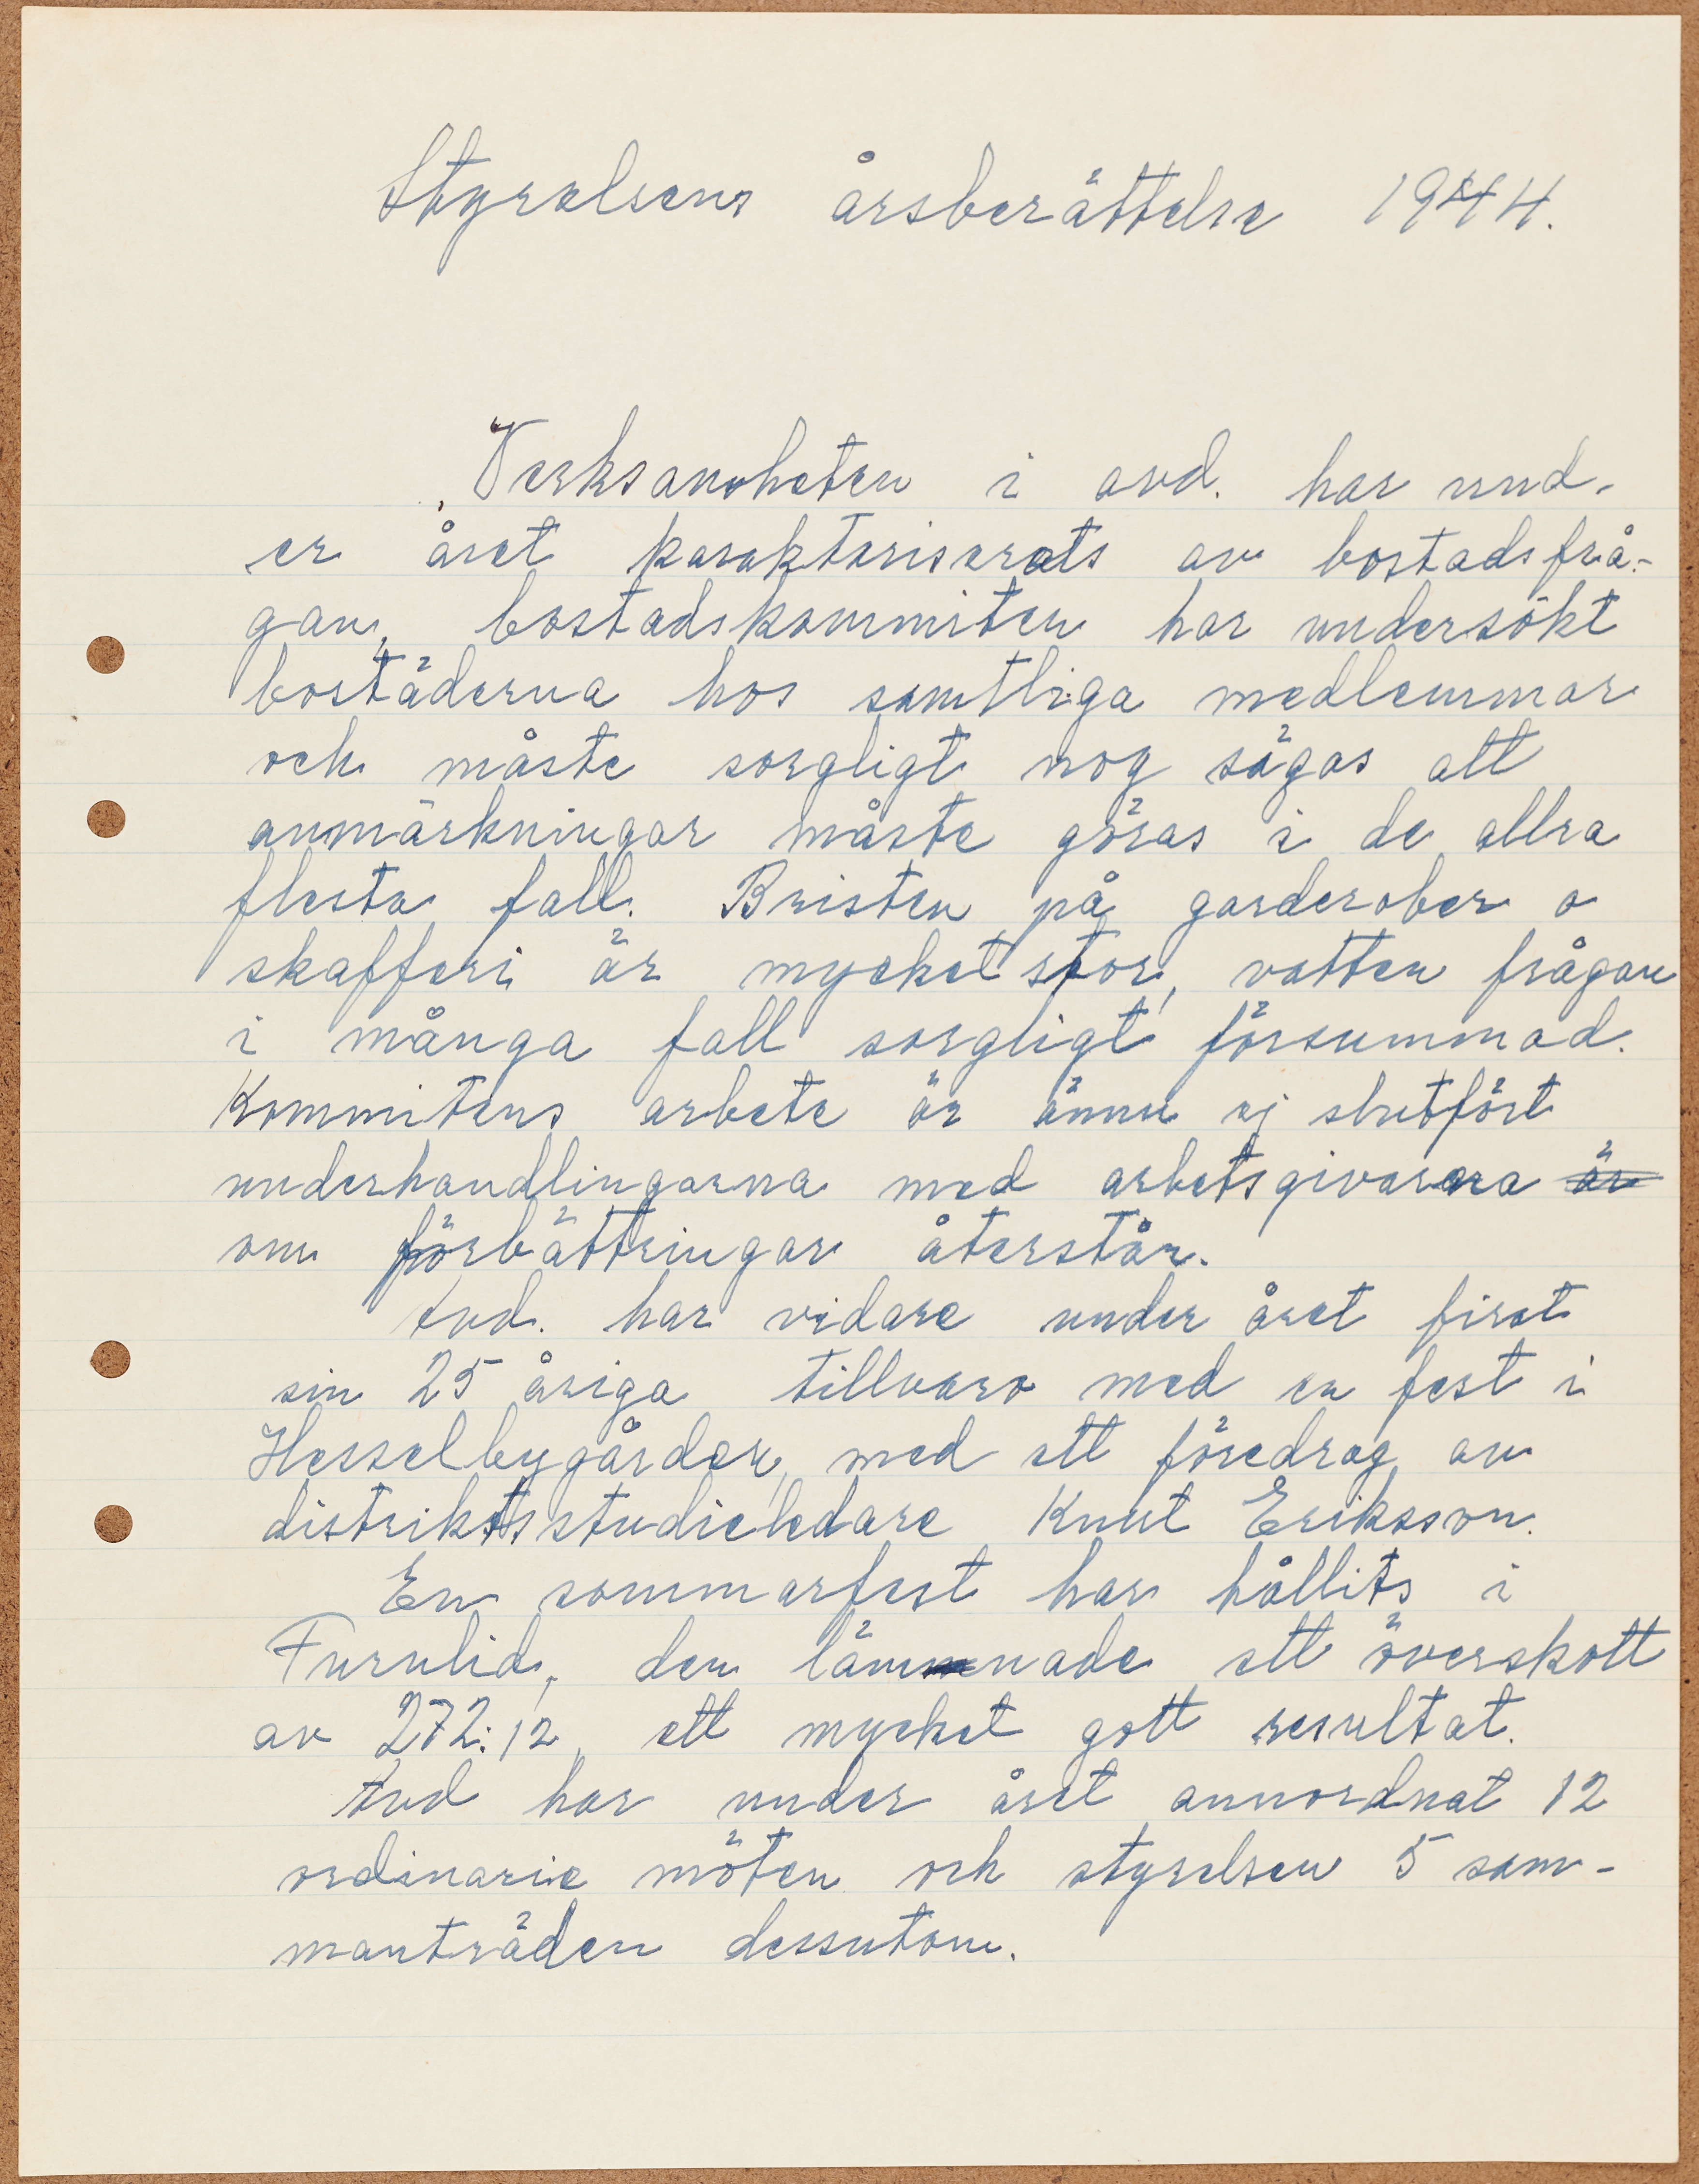 Styrelsens årsberättelse 1944.
Verksamheten i avd. har und-
er året karakteriserats av bostadsfrå-
gan, bostadskommiten har undersökt
bostäderna hos samtliga medlemmar
och måste sorgligt nog sägas att
anmärkningar måste göras i de allra
flesta fall. Bristen på garderober o
skafferi är mycket stor, vatten frågan
i många fall sorgligt försummad.
Kommitens arbete är ännu ej slutfört
underhandlingarna med arbetsgivarara är
om förbättringar återstår.
Avd. har vidare under året firat
sin 25 åriga tillvaro med en fest i
Hesselbygården, med ett föredrag av
distriktsstudieledare Knut Eriksson.
En sommarfest har hållits i
Furulid, den lämnade ett överskott
av 272:12, ett mycket gott resultat.
Avd har under året annordnat 12
ordinarie möten och styrelsen 5 sam-
manträden dessutom.